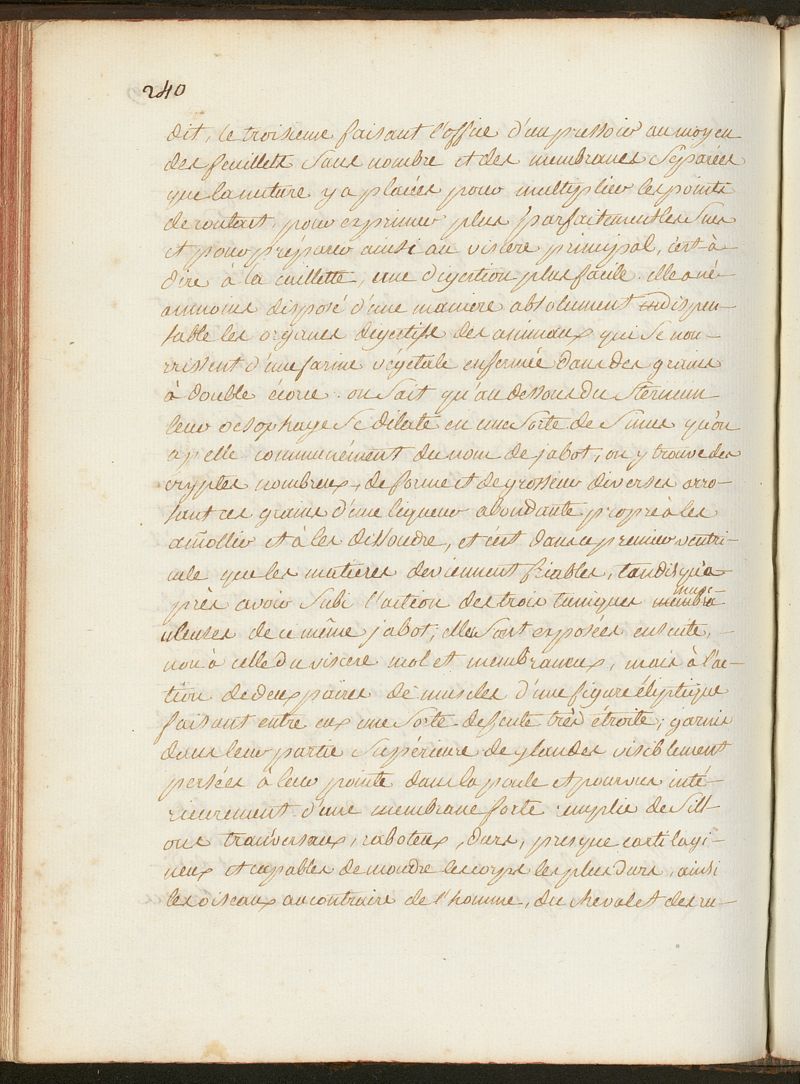 240
dit, le troisieme faisant l'office d'un pressoir au moyen
des feuillets sans nombre et des membranes separées
que la nature y a placées pour multiplier les points
de contact, pour exprimer plus parfaitement les sucs
et pour préparer ainsi au viscere principal, c'est-à-
dire à la caillette, une digestion plus facile. elle a né-
anmoins disposé d'une maniere absolument indispen-
sable les organes digestifs des animaux qui se nou-
rrissent d'une farine végétale enfermée dans des grains
à double écorce. on sait qu'au dessous du sternum
leur oesophage se dilate en une sorte de sinus qu'on
appelle communément du nom de jabot; on y trouve des
cryptes nombreux, de forme et de grosseur diverses arro-
sant ces grains d'une liqueur abondante propre à les
amollir et à les dissoudre, et c'est dans ce premier ventri-
cule que les matieres deviennent friables, tandis qu'a-
près avoir subi l'action des trois tuniques membra musc-
uleuses de ce même jabot; elles sont exposées ensuite,
non à celle du viscere mol et membraneux, mais à l'ac-
tion de deux paires de muscles d'une figure éliptique
faisant entre eux une sorte de fente très étroite; garnis
dans leur partie supérieure de glandes visiblement
persées à leur pointe dans la poule et pourvus inté-
rieurement d'une membrane forte remplie de sill-
ons transversaux, raboteux, durs, presque cartilagi-
neux et capables de moudre les corps les plus durs, ainsi
les oiseaux au contraire de l'homme, du cheval et des ru-